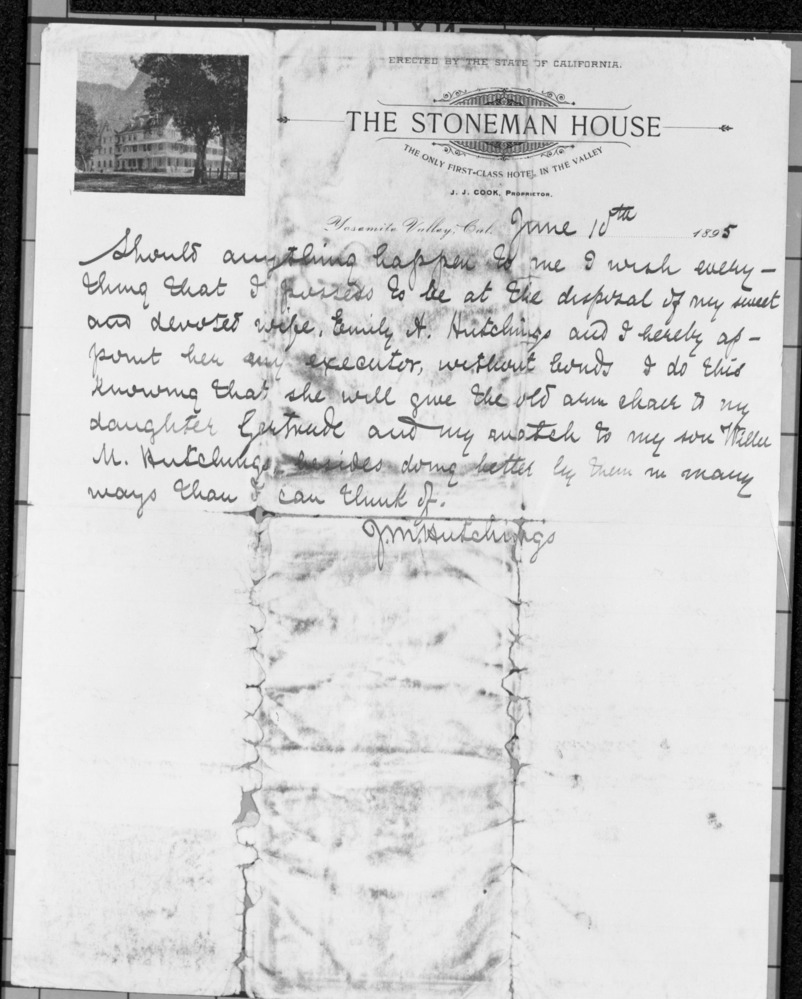 ERECTED BY THE STATE OF CALIFORNIA.
THE STONEMAN HOUSE
THE ONLY FIRST-CLASS HOTEL IN THE VALLEY
J. J. COOK, PROPRIETOR.
Yosemite Valley, Cal. June 10th 1895
Should anything happen to me I wish every-
thing that I possess to be at the disposal of my sweet
and devoted wife, Emily A. Hutchings and I hereby ap-
point her my executor, without bonds I do this
knowing that she will give the old arm chair to my
daughter Gertrude and my watch to my son Willie
M. Hutchings, besides doing better by them in many
ways than I can think of.
J M Hutchings